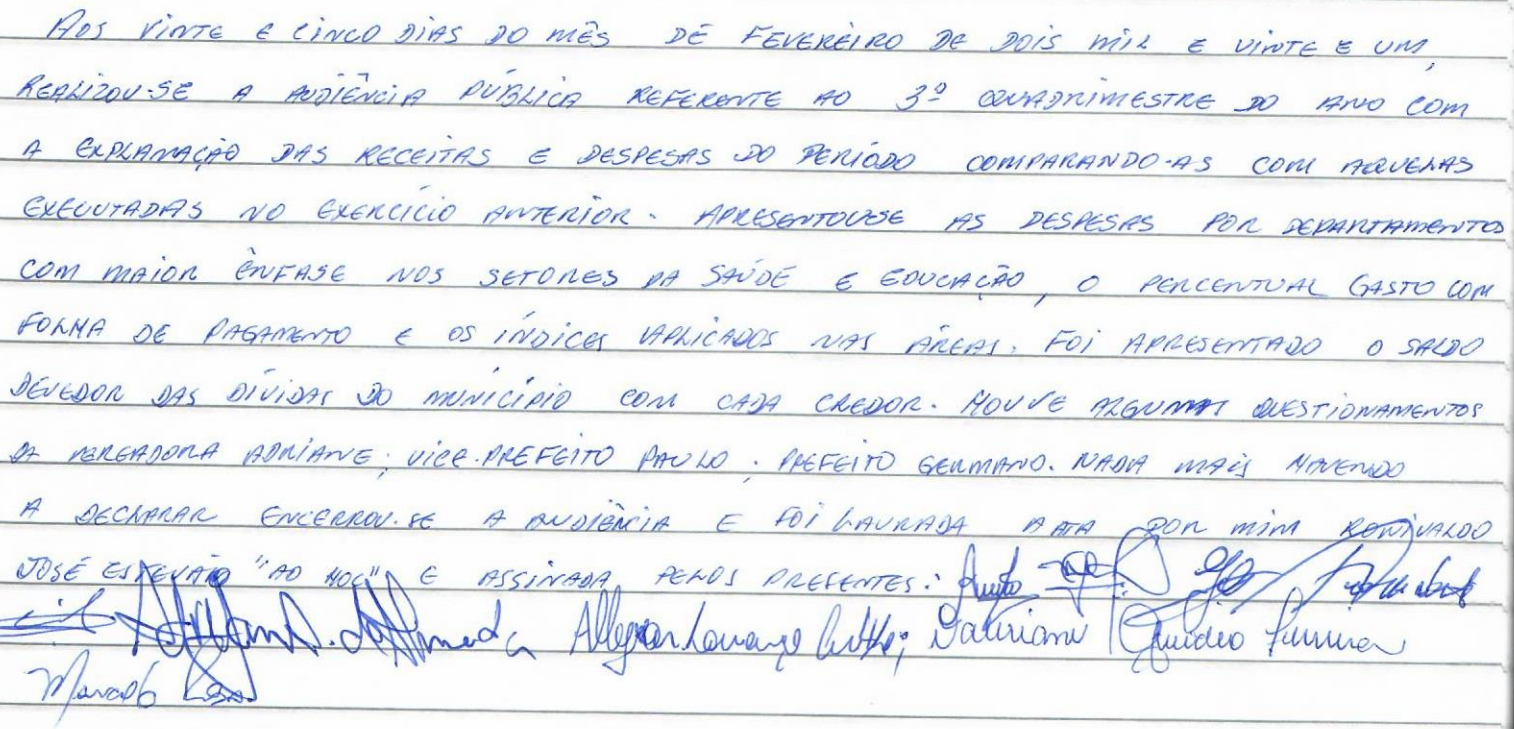 AOS VINTE E CINCO DIAS DO MÊS DE FEVEREIRO DE DOIS MIL E VINTE E UM,
REALIZOU-SE A AUDIÊNCIA PÚBLICA REFERENTE AO 3º QUADRIMESTRE DO ANO COM
A EXPLANAÇÃO DAS RECEITAS E DESPESAS DO PERÍODO COMPARANDO-AS COM AQUELAS
EXECUTADAS NO EXERCÍCIO ANTERIOR. APRESENTOU-SE AS DESPESAS POR DEPARTAMENTOS
COM MAIOR ÊNFASE NOS SETORES DA SAÚDE E EDUCAÇÃO, O PERCENTUAL GASTO COM
FOLHA DE PAGAMENTO E OS ÍNDICES APLICADOS NAS ÁREAS. FOI APRESENTADO O SALDO
DEVEDOR DAS DÍVIDAS DO MUNICÍPIO COM CADA CREDOR. HOUVE ALGUNS QUESTIONAMENTOS
DA VEREADORA ADRIANE; VICE-PREFEITO PAULO; PREFEITO GERMANO. NADA MAIS HAVENDO
A DECLARAR ENCERROU-SE A AUDIÊNCIA E FOI LAVRADA A ATA POR MIM RONIVALDO
JOSÉ ESTEVÃO "AD HOC" E ASSINADA PELOS PRESENTES: